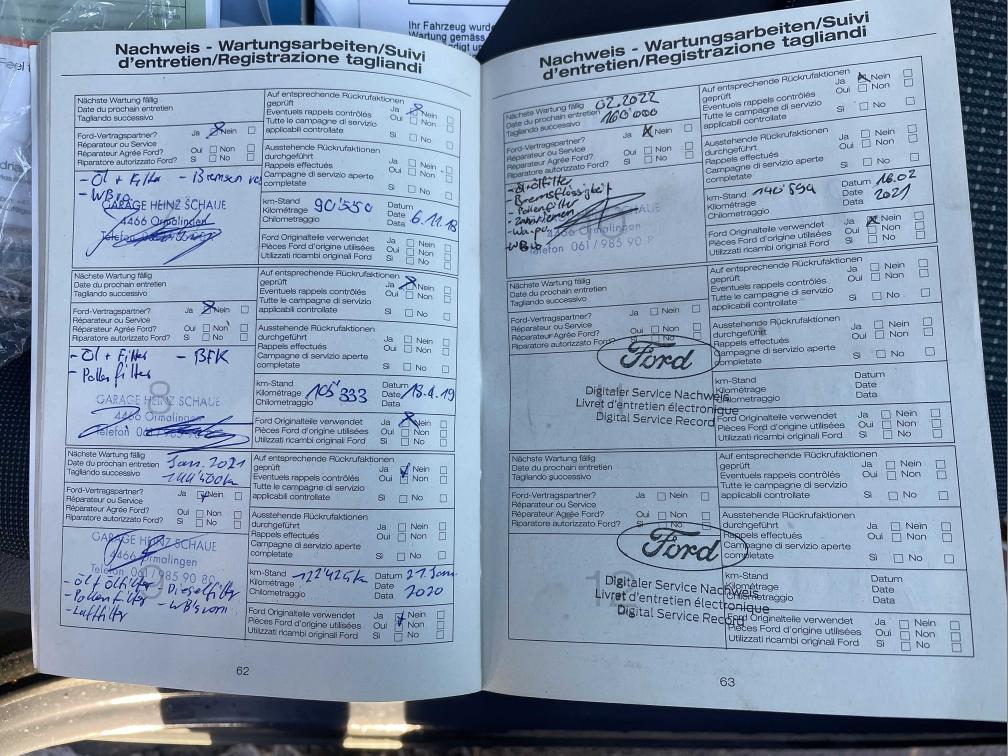 Ihr Fahrzeug wurde
Wartung gemäss
Nachweis - Wartungsarbeiten/Suivi
d'entretien/Registrazione tagliandi
Nächste Wartung fällig
Date du prochain entretien
Tagliando successivo
Auf entsprechende Rückrufaktionen
geprüft Ja Nein
Eventuels rappels contrôlés Oui Non
Tutte le campagne di servizio
applicabili controllate Sì No
Ford-Vertragspartner? Ja Nein
Réparateur ou Service
Réparateur Agrée Ford? Oui Non
Riparatore autorizzato Ford? Sì No
Ausstehende Rückrufaktionen
durchgeführt Ja Nein
Rappels effectués Oui Non
Campagne di servizio aperte
completate Sì No
- Öl + Filter - Bremsen
GARAGE HEINZ SCHAUE
4466 Ormalingen
Telefon
km-Stand
Kilométrage 90'550
Chilometraggio
Datum
Date 6.11.18
Data
Ford Originalteile verwendet Ja Nein
Pièces Ford d'origine utilisées Oui Non
Utilizzati ricambi originali Ford Sì No
Nächste Wartung fällig
Date du prochain entretien
Tagliando successivo
Auf entsprechende Rückrufaktionen
geprüft Ja Nein
Eventuels rappels contrôlés Oui Non
Tutte le campagne di servizio
applicabili controllate Sì No
Ford-Vertragspartner? Ja Nein
Réparateur ou Service
Réparateur Agrée Ford? Oui Non
Riparatore autorizzato Ford? Sì No
Ausstehende Rückrufaktionen
durchgeführt Ja Nein
Rappels effectués Oui Non
Campagne di servizio aperte
completate Sì No
- Öl + Filter - BFK
- Pollenfilter
GARAGE HEINZ SCHAUE
4466 Ormalingen
Telefon
km-Stand
Kilométrage 105'333
Chilometraggio
Datum
Date 13.4.19
Data
Ford Originalteile verwendet Ja Nein
Pièces Ford d'origine utilisées Oui Non
Utilizzati ricambi originali Ford Sì No
Nächste Wartung fällig Jan. 2021
Date du prochain entretien
Tagliando successivo
Auf entsprechende Rückrufaktionen
geprüft Ja Nein
Eventuels rappels contrôlés Oui Non
Tutte le campagne di servizio
applicabili controllate Sì No
Ford-Vertragspartner? Ja Nein
Réparateur ou Service
Réparateur Agrée Ford? Oui Non
Riparatore autorizzato Ford? Sì No
Ausstehende Rückrufaktionen
durchgeführt Ja Nein
Rappels effectués Oui Non
Campagne di servizio aperte
completate Sì No
GARAGE HEINZ SCHAUE
4466 Ormalingen
Telefon 061 / 985 90 80
- Öl + Ölfilter - Dieselfilter
- Pollenfilter
- Luftfilter
km-Stand
Kilométrage 122'425km
Chilometraggio
Datum 21. Jan.
Date
Data 2020
Ford Originalteile verwendet Ja Nein
Pièces Ford d'origine utilisées Oui Non
Utilizzati ricambi originali Ford Sì No
62
Nachweis - Wartungsarbeiten/Suivi
d'entretien/Registrazione tagliandi
Nächste Wartung fällig 02.2022
Date du prochain entretien
Tagliando successivo 160'000
Auf entsprechende Rückrufaktionen
geprüft Ja Nein
Eventuels rappels contrôlés Oui Non
Tutte le campagne di servizio
applicabili controllate Sì No
Ford-Vertragspartner? Ja Nein
Réparateur ou Service
Réparateur Agrée Ford? Oui Non
Riparatore autorizzato Ford? Sì No
Ausstehende Rückrufaktionen
durchgeführt Ja Nein
Rappels effectués Oui Non
Campagne di servizio aperte
completate Sì No
- Bremsflüssigkeit
- Pollenfilter
- Zahnriemen
- Wa-pu
SCHAUE
4466 Ormalingen
Telefon 061 / 985 90
km-Stand 140'599
Kilométrage
Chilometraggio
Datum 16.02
Date 2021
Data
Ford Originalteile verwendet Ja Nein
Pièces Ford d'origine utilisées Oui Non
Utilizzati ricambi originali Ford Sì No
Nächste Wartung fällig
Date du prochain entretien
Tagliando successivo
Auf entsprechende Rückrufaktionen
geprüft Ja Nein
Eventuels rappels contrôlés Oui Non
Tutte le campagne di servizio
applicabili controllate Sì No
Ford-Vertragspartner? Ja Nein
Réparateur ou Service
Réparateur Agrée Ford? Oui Non
Riparatore autorizzato Ford? Sì No
Ausstehende Rückrufaktionen
durchgeführt Ja Nein
Rappels effectués Oui Non
Campagne di servizio aperte
completate Sì No
Ford
Digitaler Service Nachweis
Livret d'entretien électronique
Digital Service Record
km-Stand
Kilométrage
Chilometraggio
Datum
Date
Data
Ford Originalteile verwendet Ja Nein
Pièces Ford d'origine utilisées Oui Non
Utilizzati ricambi originali Ford Sì No
Nächste Wartung fällig
Date du prochain entretien
Tagliando successivo
Auf entsprechende Rückrufaktionen
geprüft Ja Nein
Eventuels rappels contrôlés Oui Non
Tutte le campagne di servizio
applicabili controllate Sì No
Ford-Vertragspartner? Ja Nein
Réparateur ou Service
Réparateur Agrée Ford? Oui Non
Riparatore autorizzato Ford? Sì No
Ausstehende Rückrufaktionen
durchgeführt Ja Nein
Rappels effectués Oui Non
Campagne di servizio aperte
completate Sì No
Ford
Digitaler Service Nachweis
Livret d'entretien électronique
Digital Service Record
12
km-Stand
Kilométrage
Chilometraggio
Datum
Date
Data
Ford Originalteile verwendet Ja Nein
Pièces Ford d'origine utilisées Oui Non
Utilizzati ricambi originali Ford Sì No
63